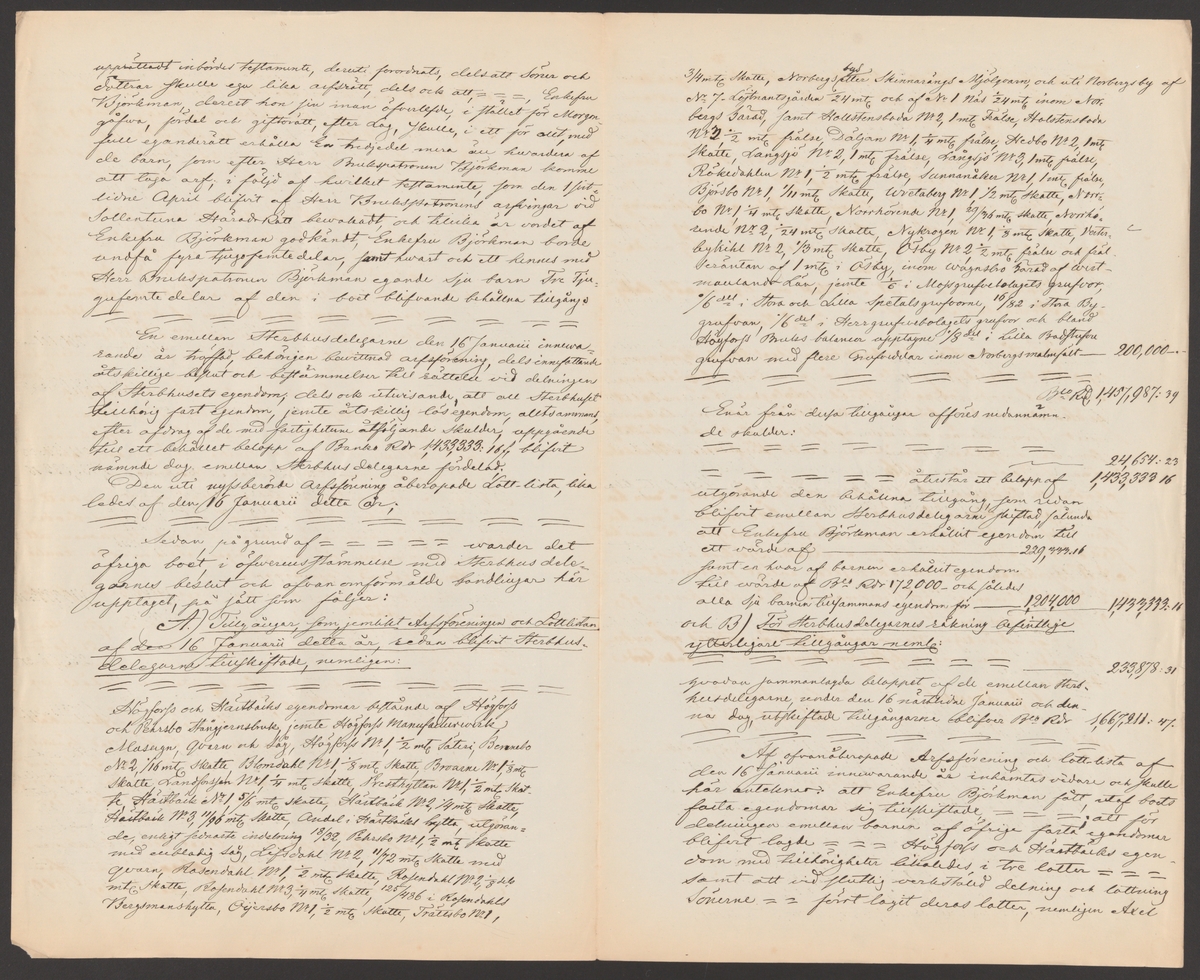 upprättadt inbördes testamente, deruti förordnats, dels att Söner och
Döttrar skulle ega lika arfsrätt, dels och att, = = =, Enkefru
Björkman, derest hon sin man öfverlefde, i stället för Morgon-
gåfva, fördel och giftorätt, efter Lag, skulle, i ett för allt, med
full eganderätt erhålla En tredjedel mera än hwardera af
de barn, som efter Herr Brukspatronen Björkman komme
att taga arf; i följd af hwilket testamente, som den 1 sist-
lidne April blifvit af Herr Brukspatronens arfvingar vid
Sollentuna Häradsrätt bewakadt och tillika är vordet af
Enkefru Björkman godkändt, Enkefru Björkman borde
undfå fyra tjugofemtedelar, samt hwart och ett hennes med
Herr Brukspatronen Björkman egande sju barn Tre Tju-
gufemtedelar af den i boet blifvande behållna tillgång;
= = = = = = = =
En emellan Sterbhusdelegarne den 16 Januarii innewa-
rande år träffad, behörigen bewittnad arfsförening, dels innefattande
åtskillige beslut och bestämmelser till rättelse vid delningen
af Sterbhusets egendom, dels ock utwisande, att all Sterbhuset
tillhörig fast egendom, jemte åtskillig lös egendom, alltsammans,
efter afdrag af de med fastigheterne åtföljande Skulder, uppgående
till ett behållet belopp af Banko Rdr 1,433,333: 16, blifvit
nämnde dag emellan Sterbhusdelegarne fördelad;
Den uti nyssberörde Arfsförening åberopade Lott-lista, lika
ledes af den 16 Januarii detta år;
= = = = = = = =
Sedan på grund af = = = = = warder det
öfriga boet i öfverensstämmelse med Sterbhusdele-
garnes beslut och ofvanomförmälde handlingar här
upptaget, på sätt som följer:
A.) Tillgångar som jemlikt Arfsföreningen och Lottlistan
af den 16 Januarii detta år, redan blifvit Sterbhus-
delegarne tillskiftade, nemligen:
= = = = = = = =
Högfors och Hästbäcks egendomar bestående af Högfors
och Pehrsbo Stångjernsbruk, jemte Högfors Manufacturwerk,
Masugn, qvarn och Såg, Högfors No 1, ½ mtl Säteri, Bennebo
No 2, 1/16 mtl Skatte Blomdahl No 1 ⅛ mtl Skatte, Broarne No 1, ⅛ mtl
Skatte, Landforsen No 1 ¼ mtl Skatte, Prosthyttan No 1, ½ mtl Skat-
te, Hästbäck No 1 5/6 mtl Skatte, Hästbäck No 2, ¼ mtl Skatte,
Hästbäck No 3, 11/96 mtl Skatte, Andel i Hästbäcks hytta, utgöran-
de, enligt senaste indelning 18/32, Pehrsbo No 1, ½ mtl Skatte
med enbladig såg, Löfsdahl No 2, 1/12 mtl Skatte med
qvarn, Rosendahl No 1, ½ mtl Skatte, Rosendahl No 2, ⅛
mtl Skatte, Rosendahl No 3, ¼ mtl Skatte, 125/486 i Rosendahls
Bergsmanshytta, Gijersbo No 1 ½ mtl Skatte, Trättsbo No 1,
3/4 mtl Skatte, Norbergsby eller Skinnarängs Mjölqvarn, och uti Norbergs by af
No 7. Löjtnantsgården /24 mtl och af No 1 Näs /24 mtl inom Nor-
bergs Härad, samt Hollstensboda No 2, 1 mtl Frälse, Holstensboda
No 3, ½ mtl frälse, Däljan No 1, ¼ mtl frälse, Hedbo No 2, 1 mtl
Skatte, Långsjö No 2, 1 mtl frälse, Långsjö No 3, 1 mtl frälse,
Rökedahlen No 1, ½ mtl frälse, Sunnanåker No 1 1 mtl frälse,
Björsbo No 1, 1/11 mtl Skatte, Wretaberg No 1 1/2 mtl Skatte, Norr-
bo No 1, ¼ mtl Skatte, Norrhörende No 1, 29/36 mtl Skatte, Norrhö-
rende No 2, /24 mtl Skatte, Nykrogen No 1, ⅛ mtl Skatte, Vester-
bykihl No 2, 1/3 mtl Skatte, Ösby No 2 ½ mtl frälse och fräl-
seräntan af 1 mtl i Ösby, inom Wagnsbro Härad af West-
manlands Län, jemte 1/6 i Mossgrufvebolagets grufvor,
1/6 del i Stora och Lilla Spetalsgrufvorne, 16/82 i Stora By-
grufvan, 1/6 del i Herrgrufvebolagets grufvor och bland
Högfors Bruks balancer upptagne 1/8 del i Lilla Badstugu
grufvan med flere Grufvedelar inom Norbergs malmfält — 200,000—.-
= = = = = = = =
Bco Rdr 1,457,987: 39
Enär från dessa tillgångar afföres nedannämn-
de skulder:
= = = = = = = =
24,654: 23
= = = = = återstår ett belopp af 1,433,333 16
utgörande den behållna tillgång, som redan
blifvit emellan Sterbhusdelegarne skiftad, sålunda
att Enkefru Björkman erhållit egendom till
ett värde af 229,333.16
samt en hvar af barnen erhållit egendom
till värde af Bco Rdr 172,000 – och således
alla sju barnen tillsammans egendom för — 1,204,000 1,433,333: 16
och B) För Sterbhusdelegarnes räkning befintlige
ytterligare tillgångar neml:
= = = = = = = = — 233,878: 31
hvadan sammanlagda beloppet af de emellan Sterb-
husdelegarne, under den 16 nästledne Januarii och den-
na dag, utskiftade tillgångarne blifver Bco Rdr 1,667,211: 47.
= = = = = = = =
Af ofvanåberopade Arfsförening och lottlista af
den 16 Januarii innewarande år inhämtas widare och skulle
här antecknas: att Enkefru Björkman fått, utaf boets
fasta egendomar sig tillskiftade, = = = att för
delningen emellan barnen af öfrige fasta egendomar
blifvit lagde = = = Högfors och Hästbäcks egen-
dom med tillhörigheter likaledes, i tre lotter = = =
samt att vid slutlig verkställd delning och lottning
Sönerne = = fört lagit deras lotter, nemligen Axel